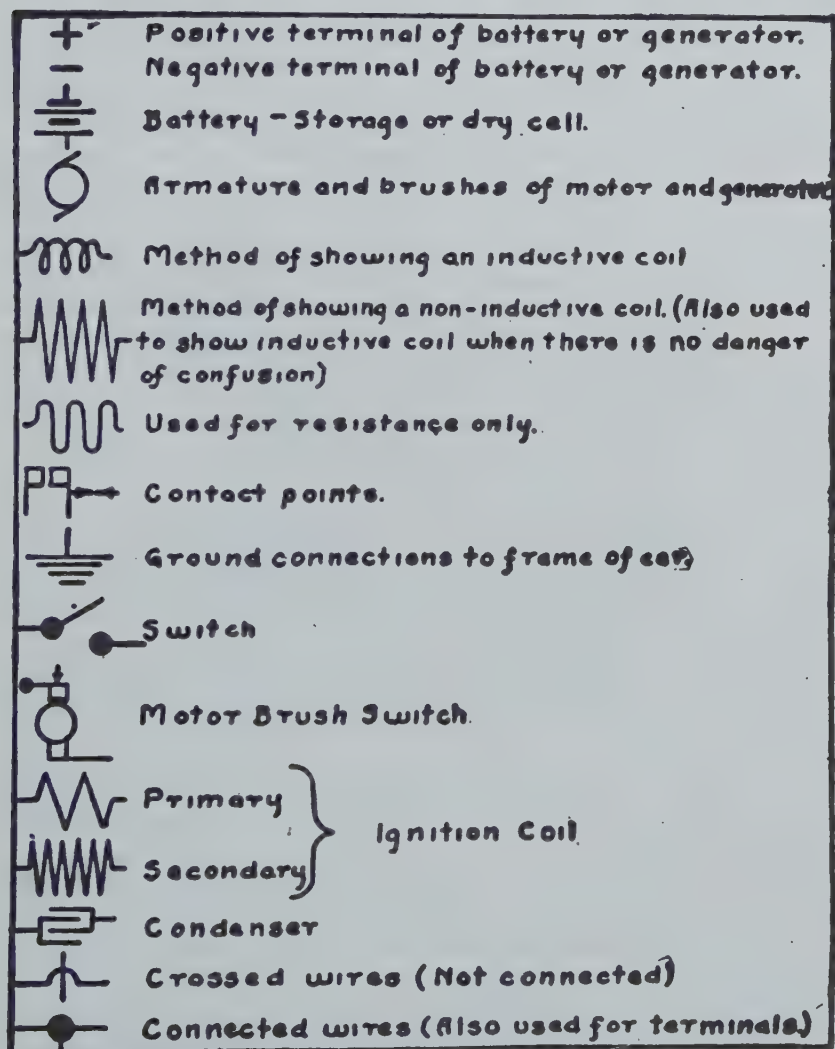 + Positive terminal of battery or generator.
− Negative terminal of battery or generator.
Battery - Storage or dry cell.
Armature and brushes of motor and generator
Method of showing an inductive coil
Method of showing a non-inductive coil. (Also used
to show inductive coil when there is no danger
of confusion)
Used for resistance only.
Contact points.
Ground connections to frame of car
Switch
Motor Brush Switch.
Primary
Ignition Coil
Secondary
Condenser
Crossed wires (Not connected)
Connected wires (Also used for terminals)